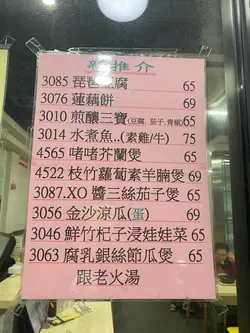 新推介
3085 琵琶豆腐 65
3076 蓮藕餅 69
3010 煎釀三寶(豆腐, 茄子, 青椒) 65
3014 水煮魚..(素雞/牛) 75
4565 啫啫芥蘭煲 65
4522 枝竹蘿蔔素羊腩煲 69
3087.XO 醬三絲茄子煲 65
3056 金沙涼瓜(蛋) 69
3046 鮮竹杞子浸娃娃菜 65
3063 腐乳銀絲節瓜煲 65
跟老火湯